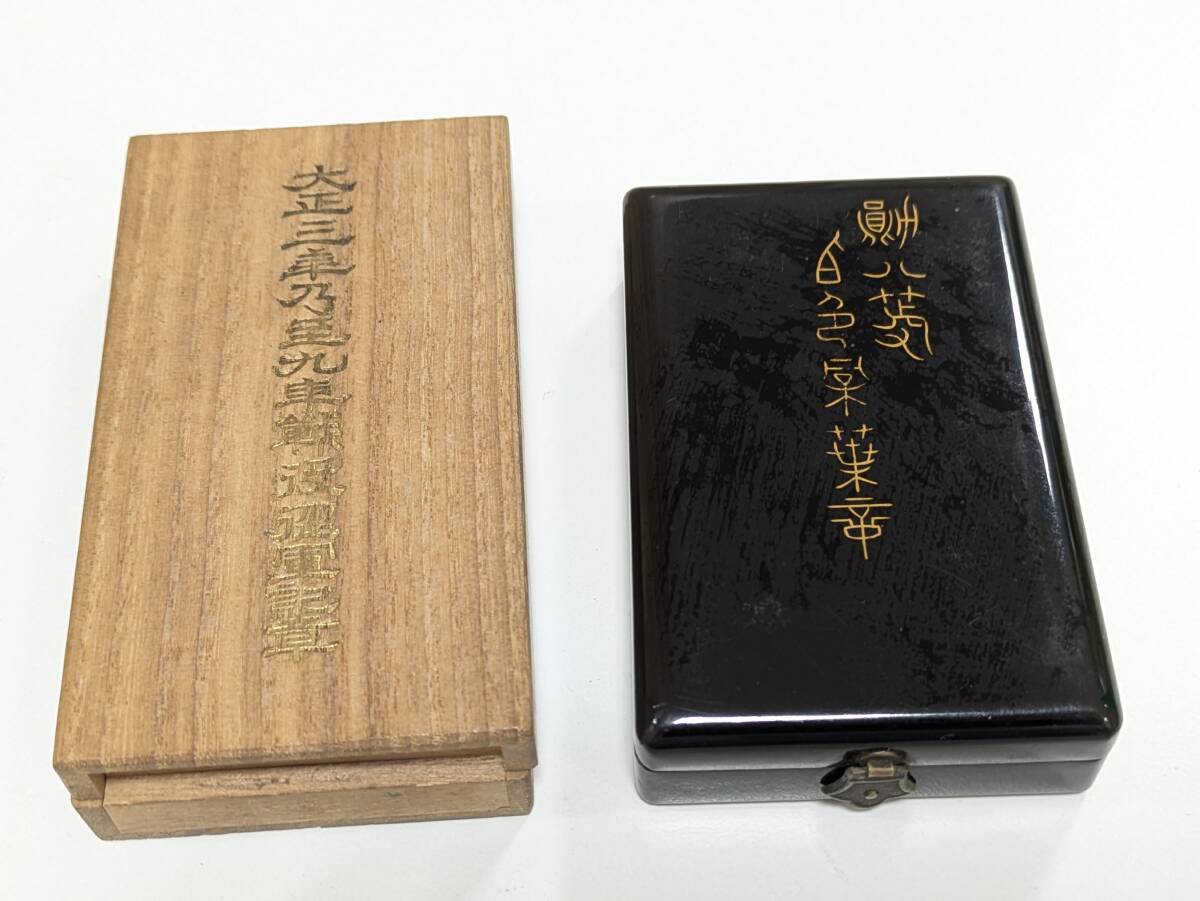 大正三年乃至九年戰役從軍記章
勲八等
白色桐葉章